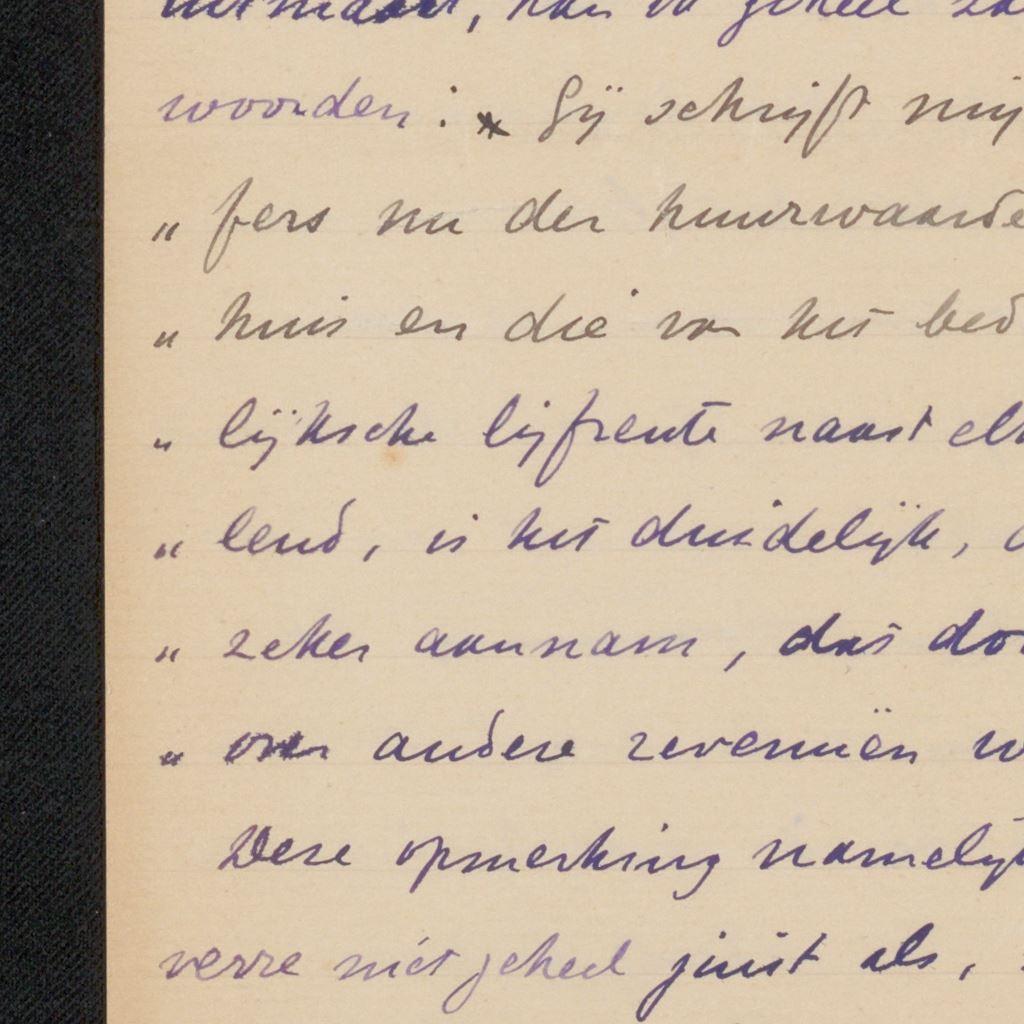 woorden: * Gij schrijft mij
„ fers nu der huurwaarde
„ huis en die van het bed
„ lijksche lijfrente naast elk
„ lend, is het duidelijk,
„ zeker aannam, dat do
„ over andere revenuën w
Deze opmerking namelijk
verre niet geheel juist als,